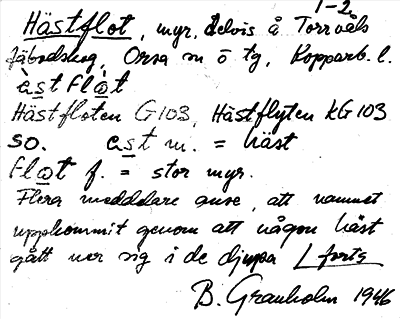 1-2
Hästflot, myr, delvis å Torrvåls
fäbodskog, Orsa sn ö tg, Kopparb. l.
àstflòt
Hästfloten G103, Hästflyten KG103
so. ast m. = häst
flot f. = stor myr.
Flera meddelare anse, att namnet
uppkommit genom att någon häst
gått ner sig i de djupa / forts
B. Granholm 1946